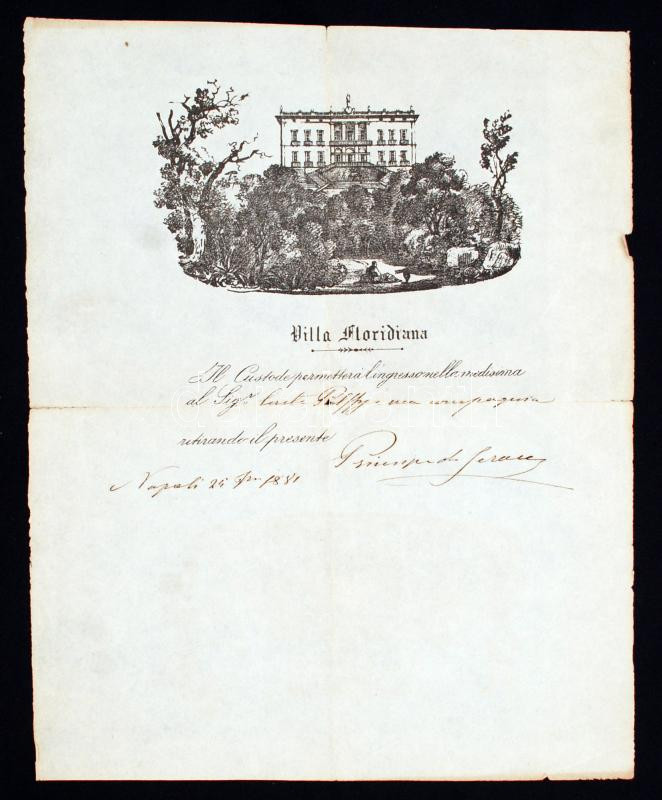 Villa Floridiana
Il Custode permetterà l'ingresso nella medesima
al Sig.r Conte Pálffy e sua compagnia
retirando il presente
Principe di Gerace
Napoli 25 1881